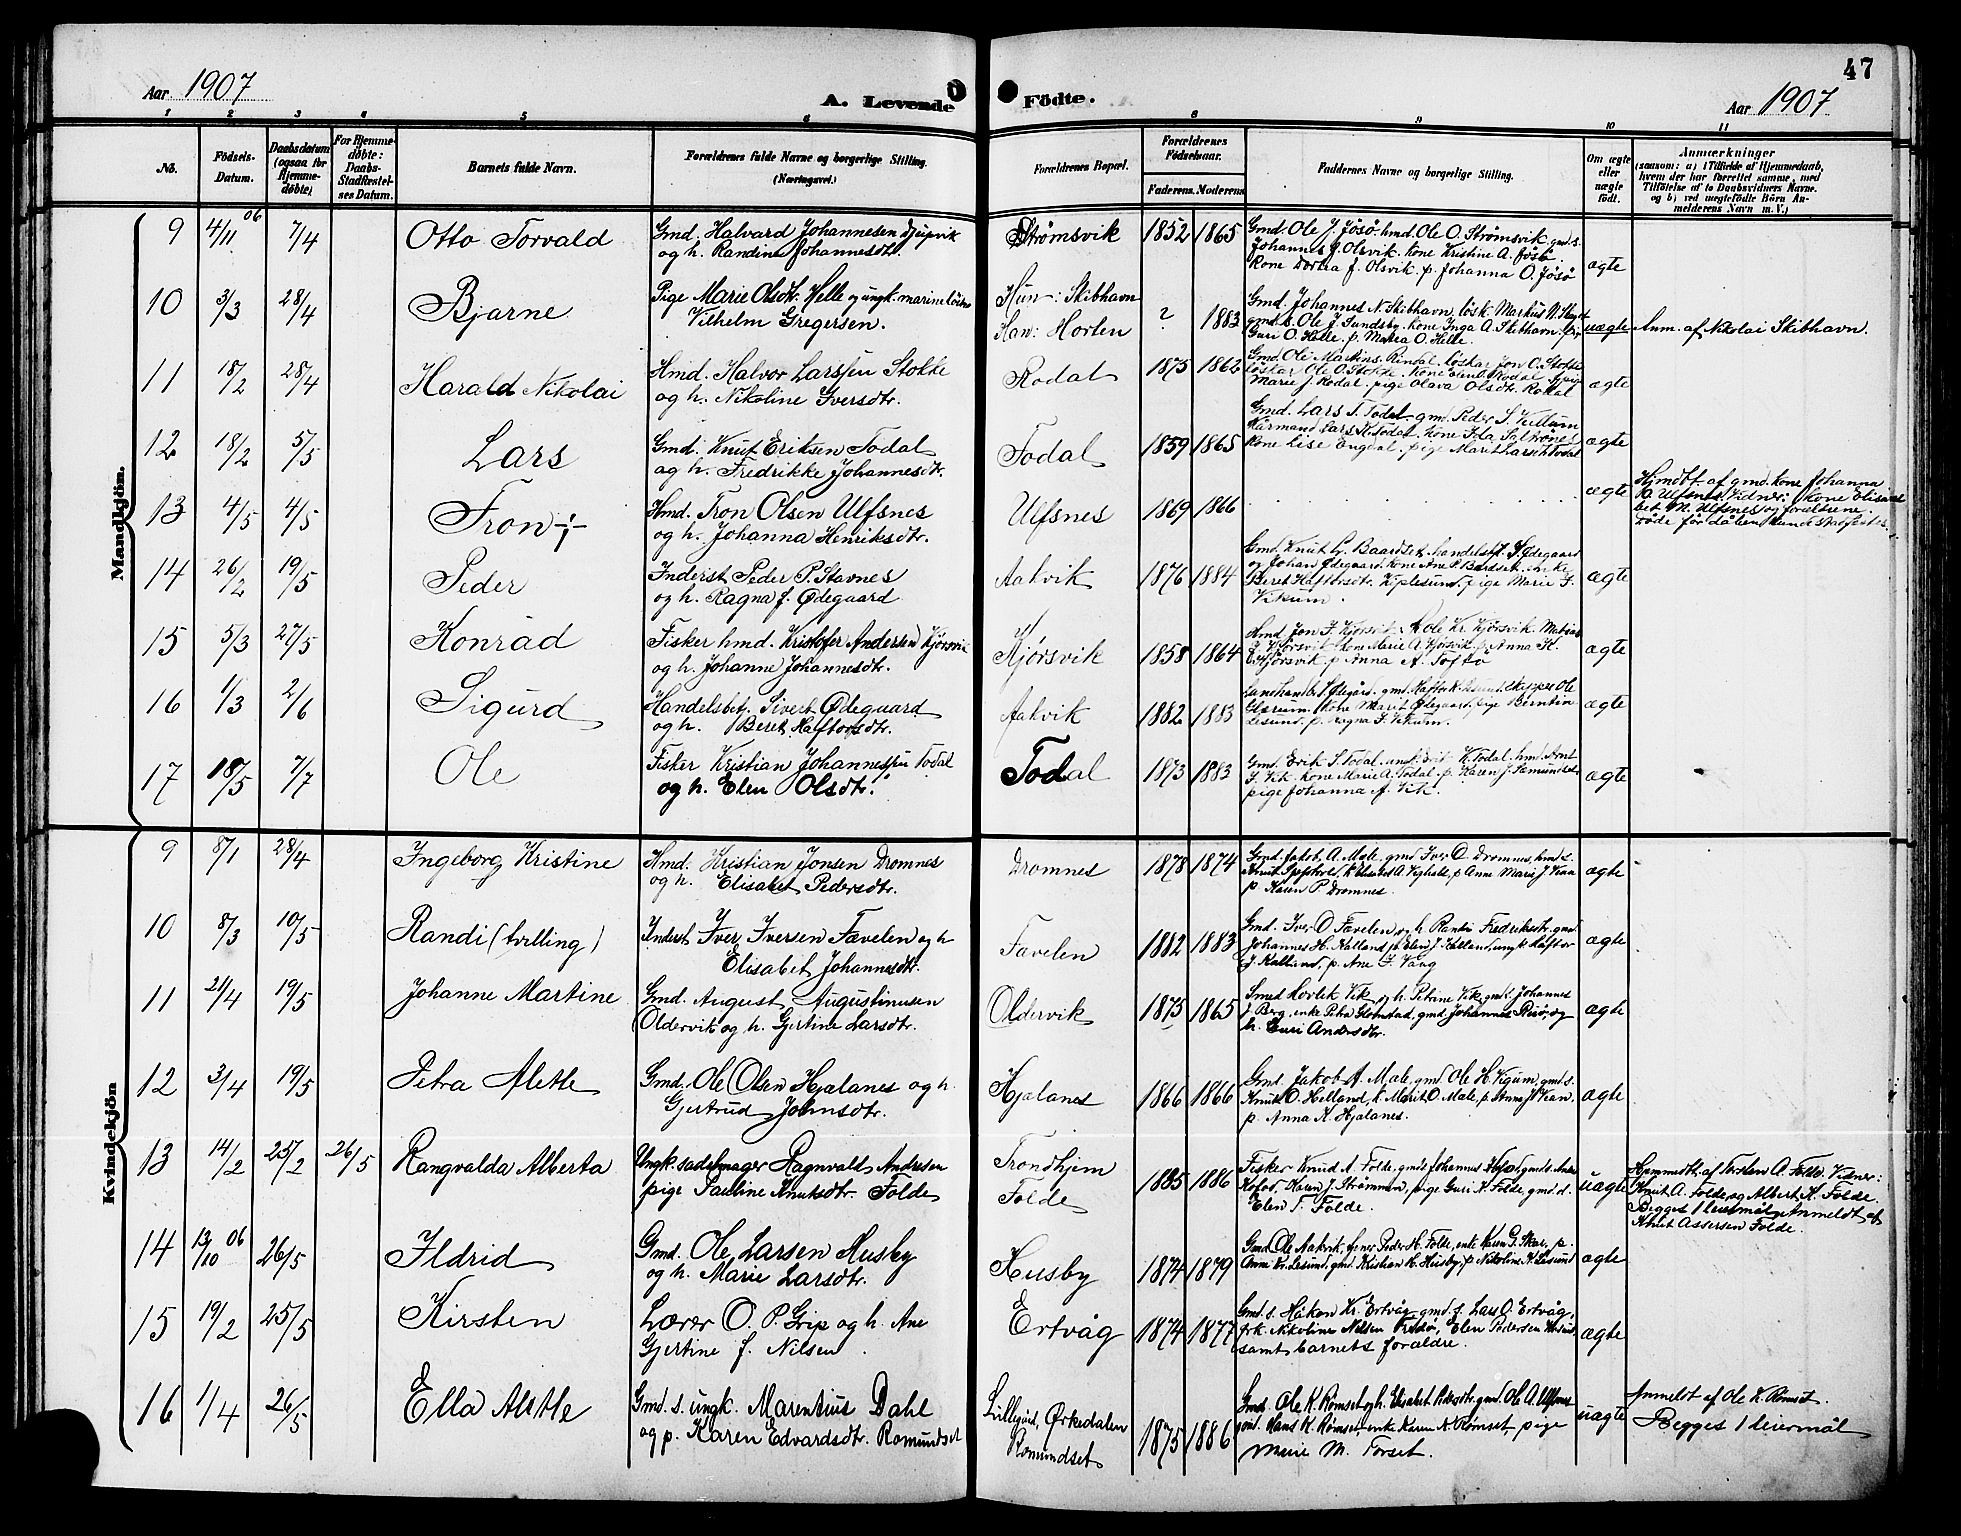 47
Aar 1907
A. Levende Födte.
Aar 1907
1 2 3 4 5 6 8 9 10 11
No.
Födsels-Datum.
Daabsdatum (ogsaa for Hjemme-döbte)
For Hjemme-döbte: Daabs-Stadfæstel-ses Datum.
Barnets fulde Navn.
Forældrenes fulde Navne og borgerlige Stilling.
(Næringsvei.)
Forældrenes Bopæl.
Forældrenes Födselsaar.
Faderens. Moderens
Faddernes Navne og borgerlige Stilling.
Om ægte eller uægte födt.
Anmærkninger
(saasom: a) i Tilfælde af Hjemmedaab,
hvem der har forrettet samme, med
Tilföielse af to Daabsvidners Navne.
og b) ved uægtefödte Börn An-
melderens Navn m. V.)
Mandkjön.
9 4/11 06 7/4 Otto Torvald
Gmd. Halvard Johannesen Djupvik
og h. Randine Johannesdtr.
Strømsvik 1852 1865
Gmd. Ole J. Jösö. hmd. Ole O. Strømsvik gmd.s.
Johannes J. Olsvik. Kone Kristine A. Jösö.
Kone Dortea J. Olsvik. p. Johanna O. Jösö
ægte
10 3/3 28/4 Bjarne
Pige Marie Olsdtr. Helle og ungk. marine
Vilhelm Gregersen.
Hun: Skibhavn
Han: Horten
? 1883
Gmd. Johannes N. Skibhavn, løsk. Markus N.
gmd.s. Ole J. Sundsby. Kone Inga A. Skibhavn
Guri O. Helle. p. Marea O. Helle.
uægte
Anm. af Nikolai Skibhavn.
11 18/2 28/4 Harald Nikolai
Hmd. Halvor Larssen Stokke
og h. Nikoline Iversdtr.
Rodal 1875 1862
Gmd. Ole Martins. Rindal. løskar Jon O. Stokke
løskar Ole O. Stokke. Kone Elen O. Rodal
Marie J. Rodal. pige Olava Olsdtr. Rodal
ægte
12 18/2 5/5 Lars
Gmd. Knut Eriksen Todal
og h. Fredrikke Johannesdtr.
Todal 1859 1865
Gmd. Lars T. Todal gmd. Peder S.
Kårmand Lars K. Todal. Kone Ida
Kone Lise Engdal. pige Marit Larsdtr Todal
ægte
13 4/5 4/5 Tron
Hmd. Tron Olsen Ulfsnes
og h. Johanna Henriksdtr.
Ulfsnes 1869 1866
ægte
Hjmdbt. af gmd. kone Johanna
Ulfsnes. Vidner: Kone Elisa
bet M. Ulfsnes og forældrene.
Døde før dåben kunde stadfestes
14 26/2 19/5 Peder
Inderst Peder P. Stavnes
og h. Ragna f. Ødegaard
Aakvik 1876 1884
Gmd. Knut Baardset. handelsbt. S. Ødegaard
og Johan Ødegaard. Kone Ane P. Bardset. enke
Beret Haftorsdtr. pige Marie I.
Vikum.
ægte
15 5/3 27/5 Konrad
Fisker hmd. Kristofer Andersen Kjørsvik
og h. Johanne Johannesdtr.
Kjørsvik 1858 1864
Hmd. Jon I. Kjørsvik. Ole Kr. Kjørsvik.
Kjørsvik kone Marie A. Kjørsvik p. Anna K.
Kjørsvik p. Anna A. Toftø
ægte
16 1/3 2/6 Sigurd
Handelsbet. Sivert Ødeguard
og h. Beret Halftorsdtr.
Aakvik 1882 1883
Ødegård. gmd. Skipper Ole
Glærum. Kone Marit Ødegaard. pige Berntin
Lesund. p. Ragna I. Vikum.
ægte
17 18/5 7/7 Ole
Fisker Kristian Johannessen Todal
og h. Elen Olsdtr.
Todal 1873 1883
Gmd. Erik S. Todal. Erik K. Todal. hmd. Arnt
I. Vik. kone Marie A. Todal. p. Karen J.
pige Johanna A. Vik.
ægte
Kvindekjön
9 8/1 28/4 Ingeborg Kristine
Hmd. Kristian Jonsen Dromnes
og h. Elisabet Pedersdtr.
Dromnes 1878 1874
Gmd. Jakob A. Male. gmd. Iver O. Dromnes, hmd.s.
Knut p. Anne Marie J. Vean
p. Karen P. Dromnes.
ægte
10 8/3 10/5 Randi (tvilling)
Inderst Iver Iversen Favelen og h
Elisabet Johannesdtr.
Favelen 1882 1883
Gmd. Iver O. Favelen og h. Randi Fredriksdtr. gmd.
Johannes H. Halland p. Elen J. Halland, ungk. Haftor
J. Kalland, p. Ane I. Vaag
ægte
11 21/4 19/5 Johanne Martine
Gmd. August Augustinusen
Oldervik og h. Gjertine Larsdtr.
Oldervik 1875 1865
Smed Hovlek Vik og h. Petrine Vik, gmd.s. Johannes
J. Berg, enke Petra Glomstad, gmd. Johannes og
h. Guri Andersdtr.
ægte
12 3/4 19/5 Petra Aletle
Gmd. Ole Olsen Hjalanes og h.
Gjertrud Johnsdtr.
Hjalanes 1866 1866
Gmd. Jakob A. Male. gmd Ole H. Vigum, gmd.s.
Knut O. Helland, k. Marit O. Male, p. Anne J. Vean,
p. Anna K. Hjalanes.
ægte
13 14/2 25/2 26/5 Rangvalda Alberta
Ungk. sadelmager Ragnvald Andersen
pige Pauline Knutsdtr. Folde
Trondhjem
Folde
1885 1886
Fisker Knud A. Folde, gmds. Johannes gmd.s. Anders
Karen J. Strømmen, pige Guri K. Folde, gmd.d.
Elen T. Folde.
uægte
Hjemmedbt. af Torsten A. Folde. Vidner:
Knut A. Folde og Albert K. Folde.
Begges 1 leiermål. Anmeldt af
Knut Assersen Folde.
14 13/10 06 26/5 Ildrid
Gmd. Ole Larsen Husby
og h. Marie Larsdtr.
Husby 1874 1879
Gmd. Ole Aakvik, Peder H. Folde, enke Karen G. Skar, p.
Anne Kr. Lesund, gmd. Kristian H. Husby, p. Nikoline H. Lesund
ægte
15 19/2 25/5 Kirsten
Lærer O. P. Grip og h. Ane
Gjertine f. Nilsen.
Ertvåg 1874 1877
Gmd.s. Håkon Kr. Ertvåg, gmd.s. Lars O. Ertvåg,
frk. Nikoline Nilsen Elen Pedersen
samt barnets forældre.
ægte
16 1/4 26/5 Ella Aletle
Gmd.s. ungk. Marentius Dahl
og p. Karen Edvardsdtr. Romundset
Ørkedalen
Romundset
1875 1886
Gmd. Ole K. Rømset og h. Elisabet Pedersdtr. gmd. Ole A. Ulfsnes
gmd. Hans K. Rømset, enke Karen A. Rømset pige
Merie M. Forset.
uægte
Anmeldt af Ole K. Rømset.
Begges 1 leiermål